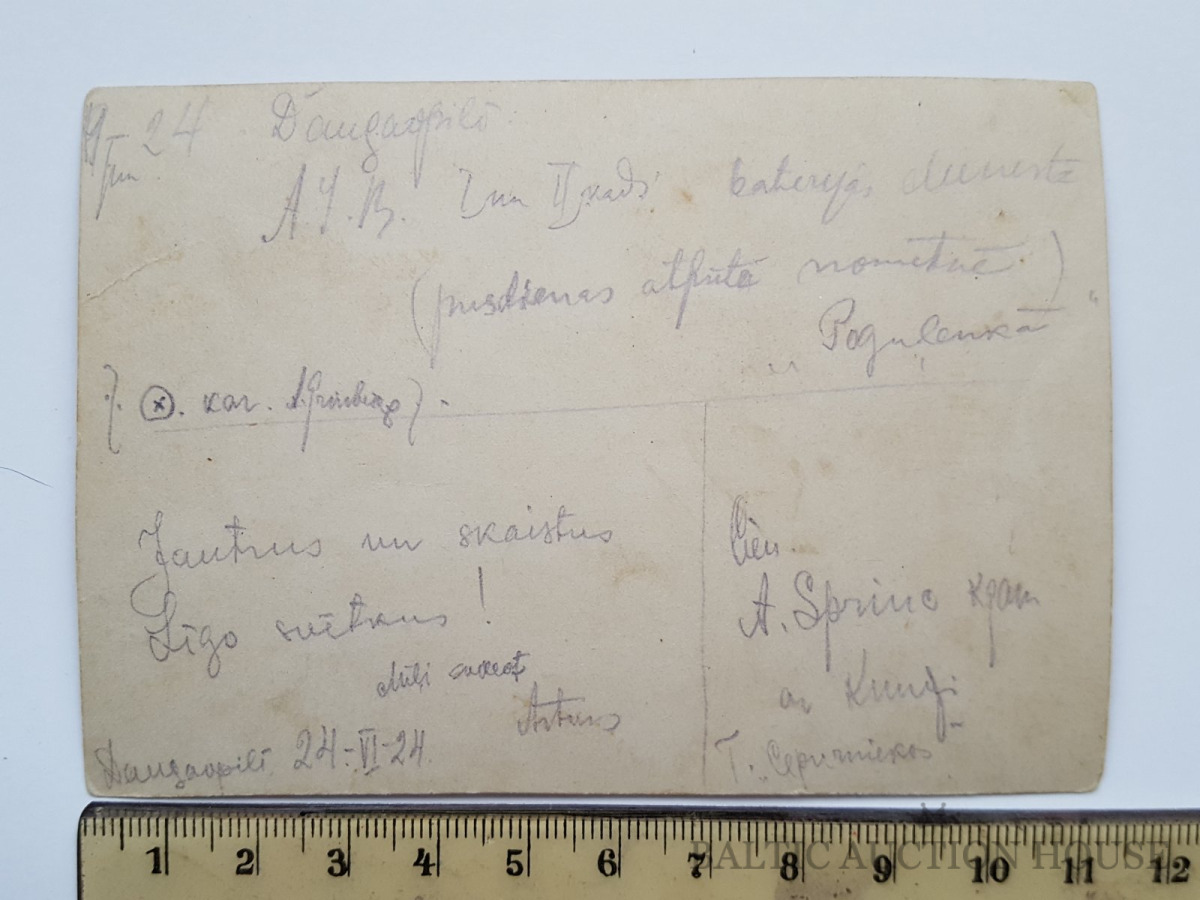 19-24 Daugavpilī
Jūn.
A.J.B. I un II kadi baterijas
(pusdienas atpūtā nometnē)
„Poguļankā"
(x). kar. A. Grinbergs
Jautrus un skaistus
Līgo svētkus!
Mīļi sveicot
Arturs
Daugavpilī 24-VI-24.
Cien.
A. Sprino kgam
ar Kundzi
T. Cepurniekos
1 2 3 4 5 6 7 8 9 10 11 12
BALTIC AUCTION HOUSE